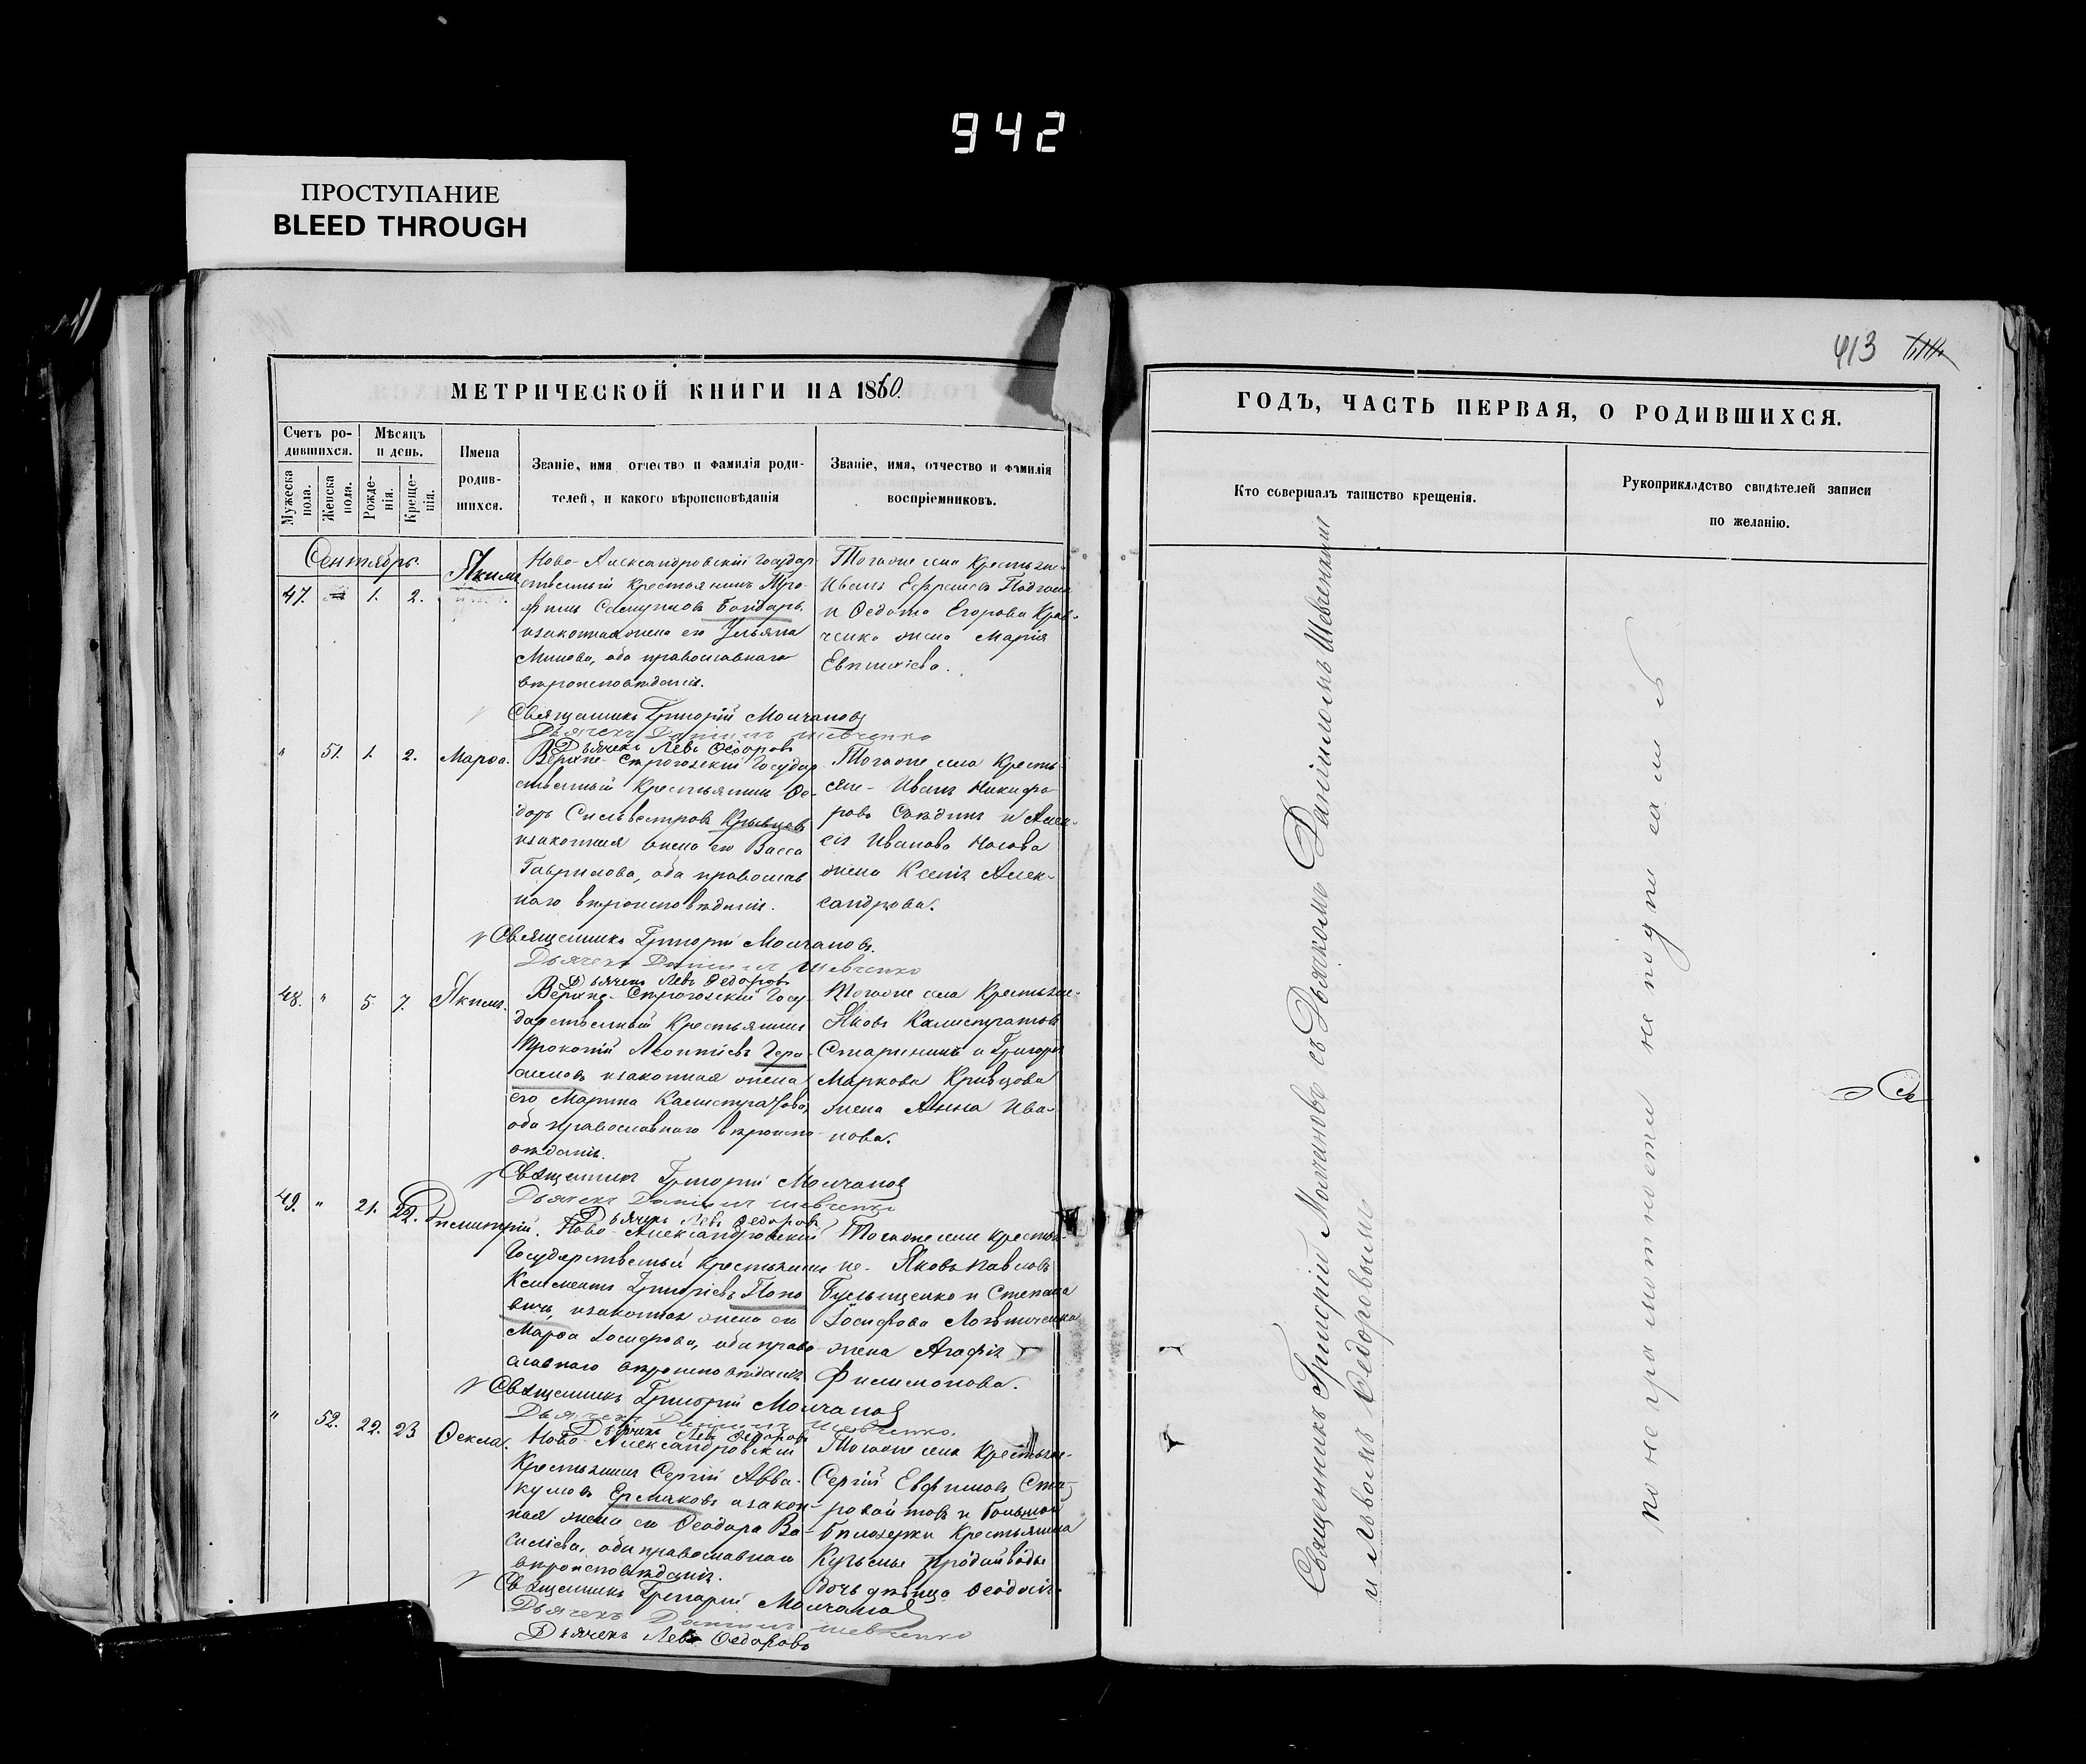 942
ПРОСТУПАНИЕ
BLEED THROUGH
413
МЕТРИЧЕСКОЙ КНИГИ НА 1860.
Счетъ ро-
дившихся.
Мѣсяцъ
и день.
Мужеска
пола.
Женска
пола.
Рожде-
нія.
Креще-
нія.
Имена
родив-
шихся.
Званіе, имя отчество и фамилія роди-
телей, и какого вѣроисповѣданія
Званіе, имя, отчество и фамилія
воспріемниковъ.
Сентябрь.
47. 1. 2. Якимъ
Ново-Александровскій Государ-
ственный крестьянинъ Тро-
фимъ Бондарь
изаконная жена его Ульяна
оба православнаго
вѣроисповѣданія.
Тогоже села Крестьяне-
Иванъ Ефремовъ
и Ѳедота Егорова Крав-
ченка жена Марія
Священникъ Григорій Молчановъ
Дьячекъ Даніилъ Шевченко
Дьячекъ Левъ Ѳедоровъ
" 51. 1. 2. Марѳа.
Верхне-Строгозскій Государ
ственный Крестьянинъ Ѳе-
доръ Сильвестровъ Кривцовъ
изаконная жена его Васса
Гаврилова, оба православ
наго вѣроисповѣданія.
Тогоже села Кресть-
яне- Иванъ Никифо
ровъ и Алек-
сія Иванова Носова
жена Ксенія Алек-
сандрова.
Священникъ Григорій Молчановъ.
Дьячекъ Даніилъ Шевченко
Дьячекъ Левъ Ѳедоровъ
48. " 5. 7. Якимъ.
Верхне-Строгозскій Госу-
дарственный Крестьянинъ
Прокопій Леонтіевъ Гера-
симовъ изаконная жена
его Марина Калистратова,
оба православнаго вѣроиспо-
вѣданія.
Тогоже села Крестьяне-
Яковъ Калистратовъ
Старининъ и Григорія
Маркова Кривцова
жена Анна Ива-
нова.
Священникъ Григорій Молчановъ
Дьячекъ Даніилъ Шевченко
Дьячекъ Левъ Ѳедоровъ
49. " 21. 22. Димитрій.
Ново-Александровскій
Государственный Крестьянинъ
Климентъ Григоріевъ Попо
вичъ, изаконная жена его
Марѳа Іосифова, оба право
славнаго вѣроисповѣданія
Тогоже села крестья-
не- Яковъ Павловъ
и Степана
Іосифова
жена Агафія
Филимонова.
Священникъ Григорій Молчановъ
Дьячекъ Даніилъ Шевченко.
Дьячекъ Левъ Ѳедоровъ
" 52. 22. 23 Ѳекла.
Ново-Александровскій
Крестьянинъ Сергій Авва-
кумовъ Ермаковъ изакон-
ная жена его Ѳеодора Ва-
силіева, оба православнаго
вѣроисповѣданія.
Тогоже села Крестьяне-
Сергій Евфимовъ Ста-
ровойтовъ и Большой
Бѣлозерки Крестьянина
Кузьмы
дочь дѣвица Ѳеодосія
Священникъ Григорій Молчановъ
Дьячекъ Даніилъ Шевченко
Дьячекъ Левъ Ѳедоровъ
ГОДЪ, ЧАСТЬ ПЕРВАЯ, О РОДИВШИХСЯ.
Кто совершалъ таинство крещенія.
Рукоприкладство свидѣтелей записи
по желанію.
Священникъ Григорій Молчановъ съ Дьячкомъ Даніиломъ Шевченкомъ
и Львомъ Ѳедоровымъ
по неграмотности не подписались